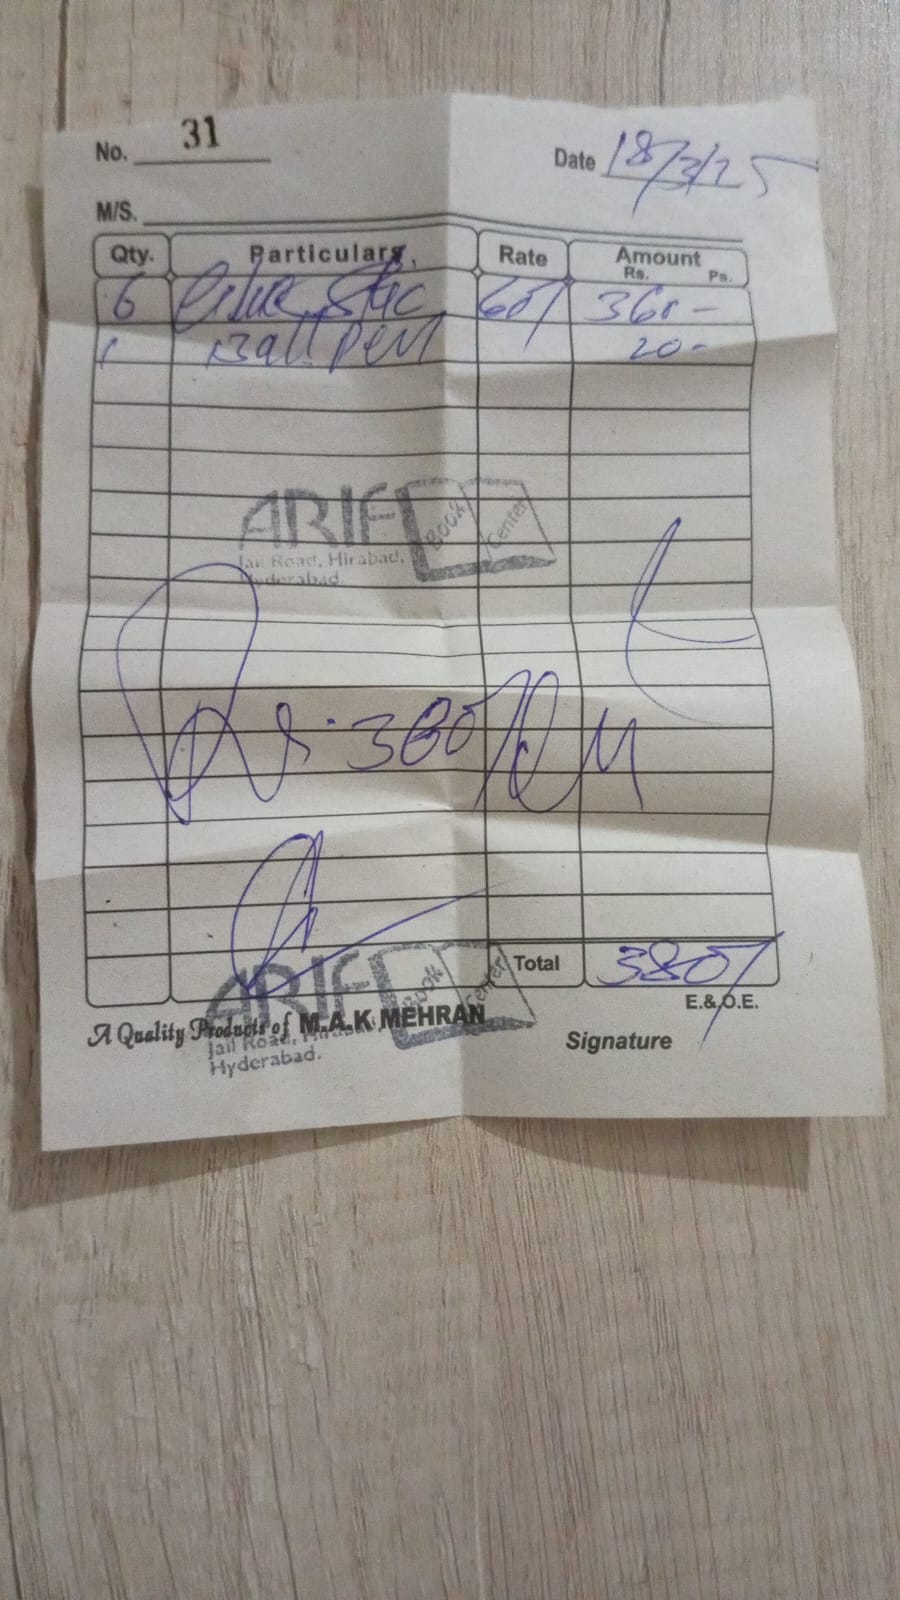 No. 31
Date 18/3/25
M/S.
Qty. Particulars Rate Amount
Rs. Ps.
6 Glue Stic 60/ 360 -
1 Ball Pen 20 -
ARIF Book Center
Jail Road, Hirabad,
Hyderabad.
Rs. 380/
Total 380/
ARIF Book Center
E.&.O.E.
A Quality Products of M.A.K MEHRAN
Jail Road, Hirabad,
Signature
Hyderabad.